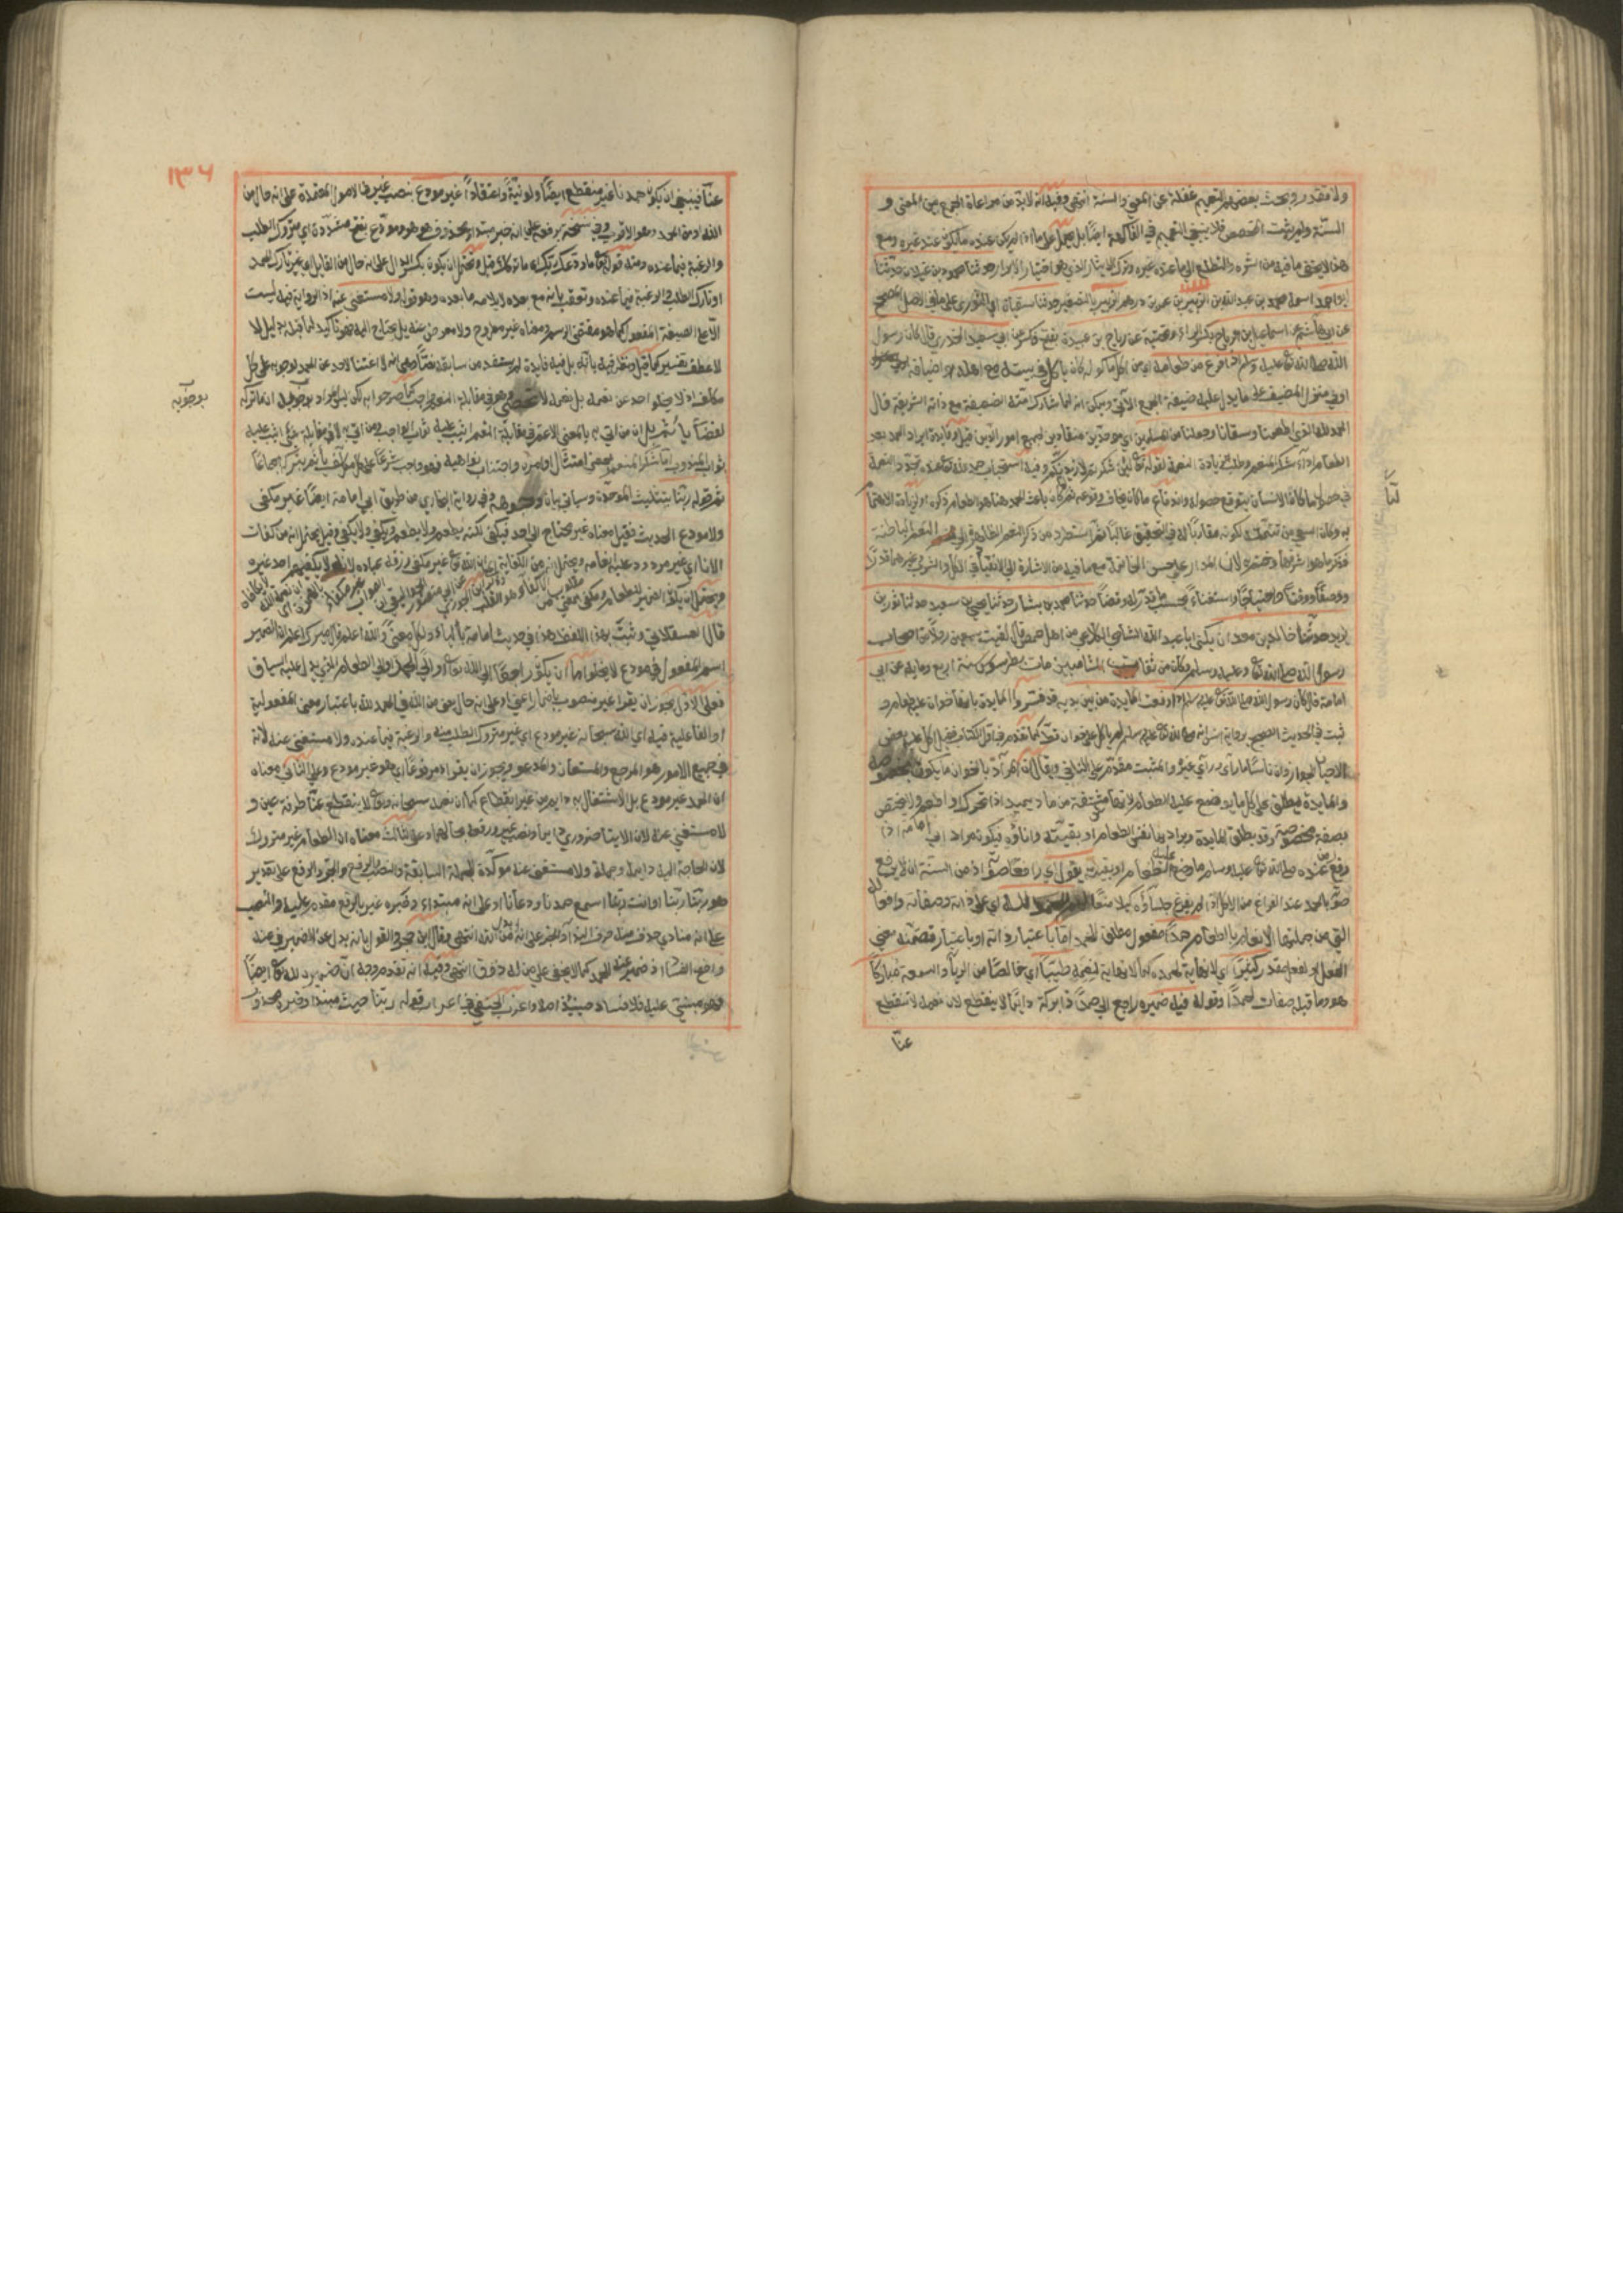 ولا تقذر وبحث بعضهم التعميم غفلة عن المعنى والسنة انتهى وفيه انه لابد من مراعاة الجمع بين المعنى و
السنة ولم يثبت المخصص فلا ينبغي التعميم في الفاكهة ايضا بل يحمل على ما اذا لم يكن عنده ما يكون عند غيره ومع
هذا لا يخفى ما فيه من الشره والتطلع الى ما عند غيره وترك الايثار الذي هو اختيار الابرار حدثنا محمود بن غيلان حدثنا
ابو احمد اسمه محمد بن عبد الله بن الزبير بن عمر بن درهم الزبيري بالتصغير حدثنا سفيان اي الثوري على ما في الاصل الصحيح
عن ابي هاشم عن اسماعيل بن رياح بكسر الراء وتحتية عن رياح بن عبيدة بفتح فكسر عن ابي سعيد الخدري قال كان رسول
الله صلى الله تع عليه وسلم اذا فرغ من طعامه اي من اكل ماكوله كان ياكل في بيته مع اهله او اضيافه
او في منزل المضيف على ما يدل عليه صيغة الجمع الآتي ويمكن انه لما شارك امته الضعيفة مع ذاته الشريفة قال
الحمد لله الذي اطعمنا وسقانا وجعلنا من المسلمين اي موحدين منقادين لجميع امور الدين قيل وفايدة ايراد الحمد بعد
الطعام اداء شكر المنعم وطلب زيادة النعمة لقوله تع لئن شكرتم لازيدنكم وفيه استحباب حمد الله تع عند تجدد النعمة
من حصول ما كان الانسان يتوقع حصوله واندفاع ما كان يخاف وقوعه ثم لما كان باعث الحمد هنا هو الطعام ذكره اولا لزيادة الاهتمام
به وكان السقي من تتمته لكونه مقارنا له في التحقيق غالبا ثم استطرد من ذكر النعم الظاهرة الى النعم الباطنة
فذكر ما هو اشرفها وختم به لان المدار على حسن الخاتمة مع ما فيه من الاشارة الى الانقياد في الاكل والشرب وغيرهما قدرا
ووصفا ووقتا واحتياجا واستغناء بحسب ما قدره له وقضا حدثنا محمد بن بشار حدثنا يحيى بن سعيد حدثنا ثور بن
يزيد حدثنا خالد بن معدان يكنى ابا عبد الله الشامي الكلاعي من اهل حمص قال لقيت سبعين رجلا من اصحاب
رسول الله صلى الله تع وعليه وسلم وكان من ثقات الشاميين مات بطرسوس سنة اربع ومايه عن ابي
امامة قال كان رسول الله صلى الله تع عليه وسلم اذا رفعت المايدة من بين يديه قد فسروا المايدة بانها خوان عليه طعام
ثبت في الحديث الصحيح برواية انس انه صلى الله تع عليه وسلم لم ياكل على خوان قط كما تقدم في اول الكتاب فقيل اكل عليه بعض
الاحيان لبيان الجواز وان انسا ما راى وراى غيره والمثبت مقدم على النافي ويقال ان المراد بالخوان ما يكون بخصوصه
والمايدة تطلق على كل ما يوضع عليه الطعام لانها مشتقة من ماد يميد اذا تحرك او اطعم ولا يختص
بصفة مخصوصة وقد يطلق المايدة ويراد بها نفس الطعام او بقيته واناؤه فيكون مراد ابي امامة اذا
رفع من عنده صلى الله تع عليه وسلم ما وضع عليه الطعام او بقيته يقول اي رافعا صوته اذ من السنة ان لا يرفع
صوته بالحمد عند الفراغ من الاكل اذا لم يفرغ جلساؤه كيلا يكون منعا لهم الحمد لله اي على ذاته وصفاته وافعاله
التي من جملتها الانعام بالاطعام حمدا مفعول مطلق للحمد اما باعتبار ذاته او باعتبار تضمنه معنى
الفعل او لفعل مقدر كثيرا اي لا نهاية لحمده كما لا نهاية لنعمه طيبا اي خالصا من الرياء والسمعة مباركا
هو وما قبله صفات لحمدا وقوله فيه ضميره راجع الى حمدا اي ذا بركة دائما لا ينقطع لان نعمه لا تنقطع
عنا
١٣٦
عنا فينبغي ان يكون حمدنا غير منقطع ايضا ولو نية واعتقادا غير مودع بنصب غير في الاصول المعتمدة على انه حال من
الله او من الحمد وهو الاقرب وفي نسخة برفعه على انه خبر مبتدا محذوف هو هو ومودع بفتح مشددة اي متروك الطلب
والرغبة فيما عنده ومنه قوله تع ما ودعك ربك اي ما تركك وقيل ويحتمل ان يكون بكسر الدال على انه حال من القايل اي غير تارك الحمد
او تارك الطلب والرغبة فيما عنده وتعقب بانه مع بعده لا يلايمه ما بعده وهو قوله ولا مستغنى عنه اذ الرواية فيه ليست
الا على الصيغة المفعول كما هو مقتضى الرسم ومعناه غير مطروح ولا معرض عنه بل يحتاج اليه فهو تاكيد لما قبله بدليل لا
لا عطف تفسير كما قيل ونظر فيه بانه بل فيه فايدة لم يستفد من سابقه نصا وهي انه لا استغناء لاحد عن الحمد لوجوبه على كل
مكلف اذ لا يخلو احد عن نعمه بل نعمه لا تحصى وهو في مقابلة النعم واجب كما صرحوا به لكن ليس المراد بوجوبه ان تاركه
لفظا ياثم بل ان من اتى به بالمعنى الاعم في مقابلة النعم اثيب عليه ثواب الواجب ومن اتى به لا في مقابلة شيء اثيب عليه
ثواب المندوب اما شكر المنعم بمعنى امتثال اوامره واجتناب نواهيه فهو واجب شرعا على كل مكلف ياثم بتركه اجماعا
ثم قوله ربنا بتثليث الموحدة وسياتي بيان وجوهه وفي رواية البخاري من طريق ابي امامة ايضا غير مكفي
ولا مودع الحديث فقيل معناه غير محتاج الى احد فيكفي لكنه يطعم ولا يطعم ويكفي ولا يكفى وقيل يحتمل انه من كفات
الاناء اي غير مردود عليه انعامه ويحتمل انه من الكفاية اي ان الله تع غير مكفي رزق عباده لانه لا يكفيهم احد غيره
ويحتمل ان يكون الضمير للطعام ومكفي بمعنى مقلوب من الاكفاء وهو القلب وذكر ابن الجوزي عن ابي منصور الجواليقي ان الصواب غير مكافا بالهمزة اي ان نعمة الله لا تكافا
قال العسقلاني وثبت بهذا اللفظ هكذا في حديث ابي امامة بالياء ولكل معنى والله اعلم قال ميرك اعلم ان الضمير
اسم المفعول في مودع لا يخلو اما ان يكون راجعا الى الله تعالى او الى الحمد او الى الطعام الذي يدل عليه السياق
فعلى الاول يجوز ان يقرا غير منصوب باضمار اعني او على انه حال من الله في الحمد لله باعتبار معنى المفعولية
او الفاعلية فيه اي الله سبحانه غير مودع اي غير متروك الطلب منه والرغبة فيما عنده ولا مستغنى عنه لانه
في جميع الامور هو المرجع والمستعان والمدعو ويجوز ان يقرا مرفوعا اي هو غير مودع وعلى الثاني معناه
ان الحمد غير مودع بل الاشتغال به دايم من غير انقطاع كما ان نعمه سبحانه وتع لا ينقطع عنا طرفة عين و
لا مستغنى عنه لان الاتيان به ضروري دايما ونصب غير ورفعه بحالهما وعلى الثالث معناه ان الطعام غير متروك
لان الحاجة اليه دايمة وجملة ولا مستغنى عنه موكدة للجملة السابقة والنصب والرفع والجر والرفع على تقدير
هو ربنا او انت ربنا اسمع حمدنا ودعانا او على انه مبتداء وخبره غير بالرفع مقدم عليه والنصب
على انه منادى حذف منه حرف النداء والجر على انه بدل من الله انتهى وقال ابن حجر والقول بانه بدل من الضمير في عنه
واضح الفساد اذ ضمير عنه للحمد كما لا يخفى على من له ذوق انتهى وفيه انه تقدم وجه ان ضميره لله تع ايضا
فهو مبني عليه فلا فساد حينئذ اصلا واغرب الحنفي في اعراب قوله ربنا حيث مبتدا وخبره محذوف
بوجوبه